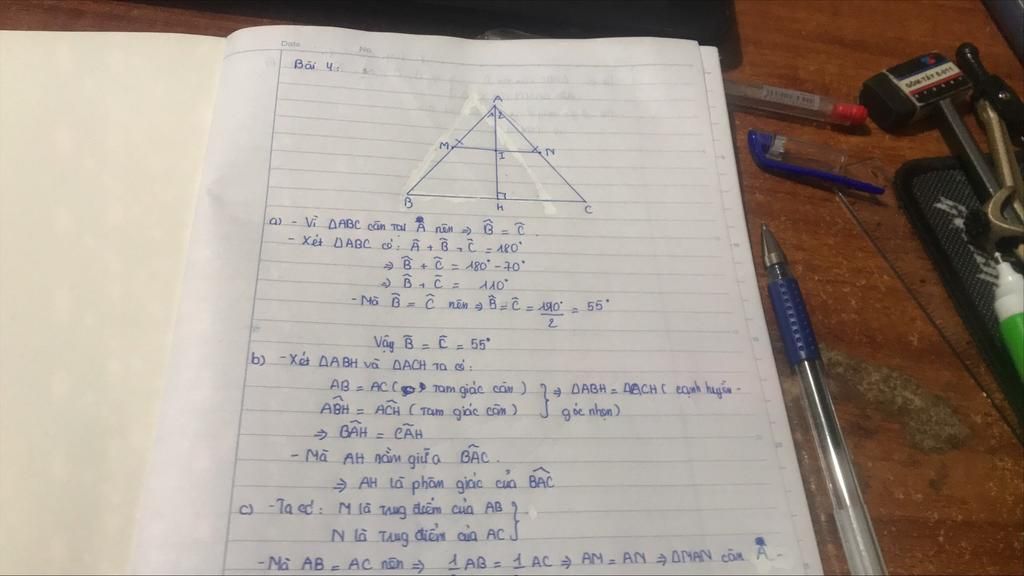 Date No.
Bài 4:
A
M I N
B H C
a) - Vì ΔABC cân tại A nên ⇒ B̂ = Ĉ.
- Xét ΔABC có: Â + B̂ + Ĉ = 180°
⇒ B̂ + Ĉ = 180° - 70°
⇒ B̂ + Ĉ = 110°
- Mà B̂ = Ĉ nên ⇒ B̂ = Ĉ = 110°/2 = 55°
Vậy B̂ = Ĉ = 55°
b) - Xét ΔABH và ΔACH ta có:
AB = AC ( tam giác cân ) } ⇒ ΔABH = ΔACH ( cạnh huyền -
ABH = ACH ( tam giác cân ) góc nhọn)
⇒ BAH = CAH
- Mà AH nằm giữa BAC.
⇒ AH là phân giác của BAC
c) - Ta có: M là trung điểm của AB }
N là trung điểm của AC
- Mà AB = AC nên ⇒ 1 AB = 1 AC ⇒ AM = AN ⇒ ΔMAN cân A -